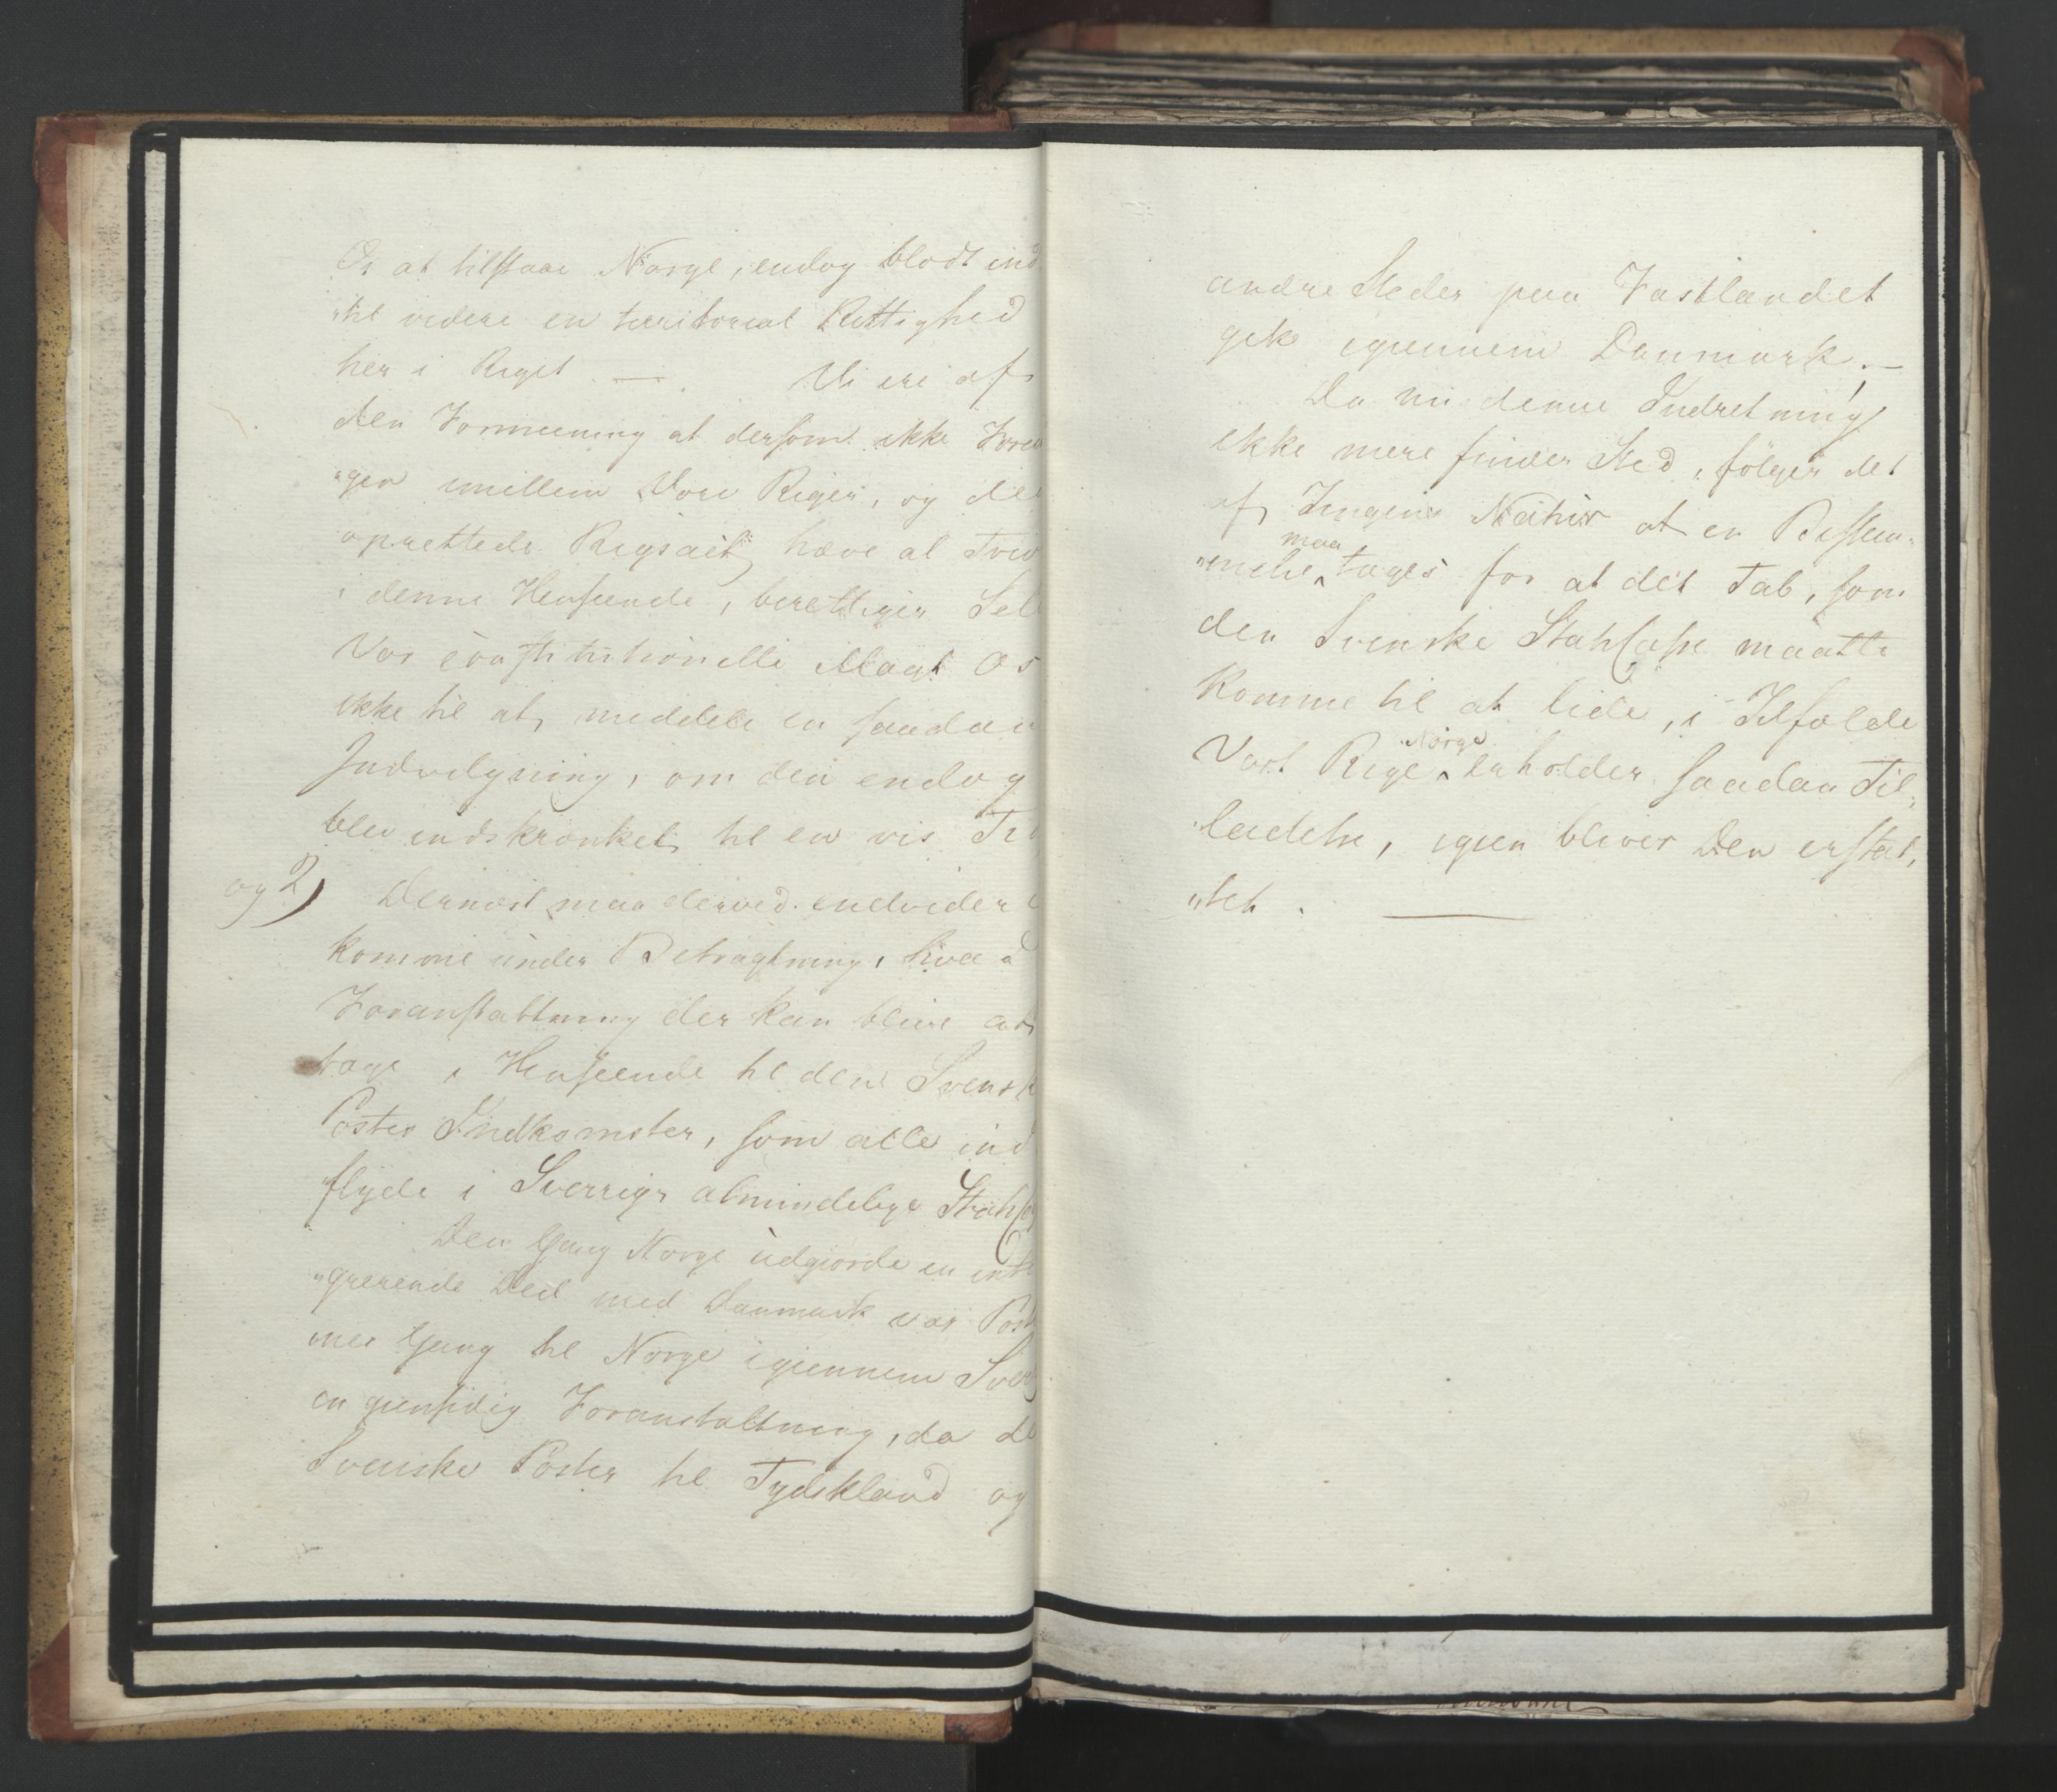 Os at tilstaae Norge, endog blodt ind
"til videre en territorial Rettighed
her i Riget. — . Vi ere af
den Formeening at dersom ikke Foreni
"gen imellem Vore Riger, og den
oprettede Rigsact, hæve al Tviv
i denne Henseende, berettiger Selv
Vor constitutionelle Magt Os
ikke til at meddele en saadan
Indvilgning, om den endog
blev indskrænket til en vis Tid
og 2) Dernæst maa derved endvidere
komme under Betragtning, hvad
Foranstaltning der kan blive at
tage i Henseende til den Svenske
Postes Indkomster, som alle ind
flyde i Sverrigs almindelige Statsca
Den Gang Norge udgiorde en inte
"grerende Deel med Danmark var Post
nes Gang til Norge igiennem Sver
en giensidig Foranstaltning, da de
Svenske Poster til Tydskland og
andre Steder paa Fastlandet
gik igiennem Danmark. —
Da nu denne Indretning
ikke mere finder Sted, følger det
af Tingenes Natur at en Bestem„
maa
"melse tages for at det Tab, som
den Svenske Statscasse maatte
komme til at lide, i Tilfælde
Norge
Vort Rige erholder saadan Til„
"ladelse, igien bliver Den erstat„
"tet. —